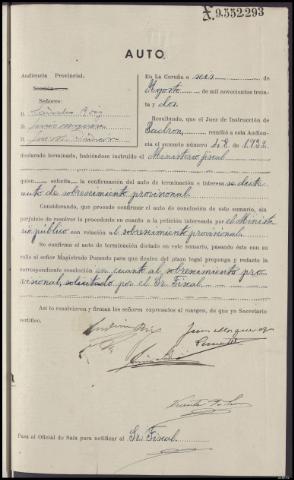 X.9.552.293
AUTO
Audiencia Provincial.
Sección
Señores:
D.
D.
D.
En La Coruña a seis de
Agosto de mil novecientos trein-
ta y dos.
Resultando, que el Juez de Instrucción de
Padron, remitió a esta Audien-
cia el sumario número 48 de 1932
declarado terminado, habiéndose instruido el Ministerio fiscal
quien solicita la confirmación del auto de terminación e interesa se dicte
auto de sobreseimiento provisional.
Considerando, que procede confirmar el auto de conclusión de este sumario, sin
perjuicio de resolver lo procedente en cuanto a la petición interesada por el Ministe-
rio público con relación al sobreseimiento provisional.
Se confirma el auto de terminación dictado en este sumario, pasando éste con su
rollo al señor Magistrado Ponente para que dentro del plazo legal proponga y redacte la
correspondiente resolución en cuanto al sobreseimiento pro-
visional, solicitado por el Sr. Fiscal.
Así lo resolvieron y firman los señores expresados al margen, de que yo Secretario
certifico.
Para el Oficial de Sala para notificar al Sr. Fiscal.